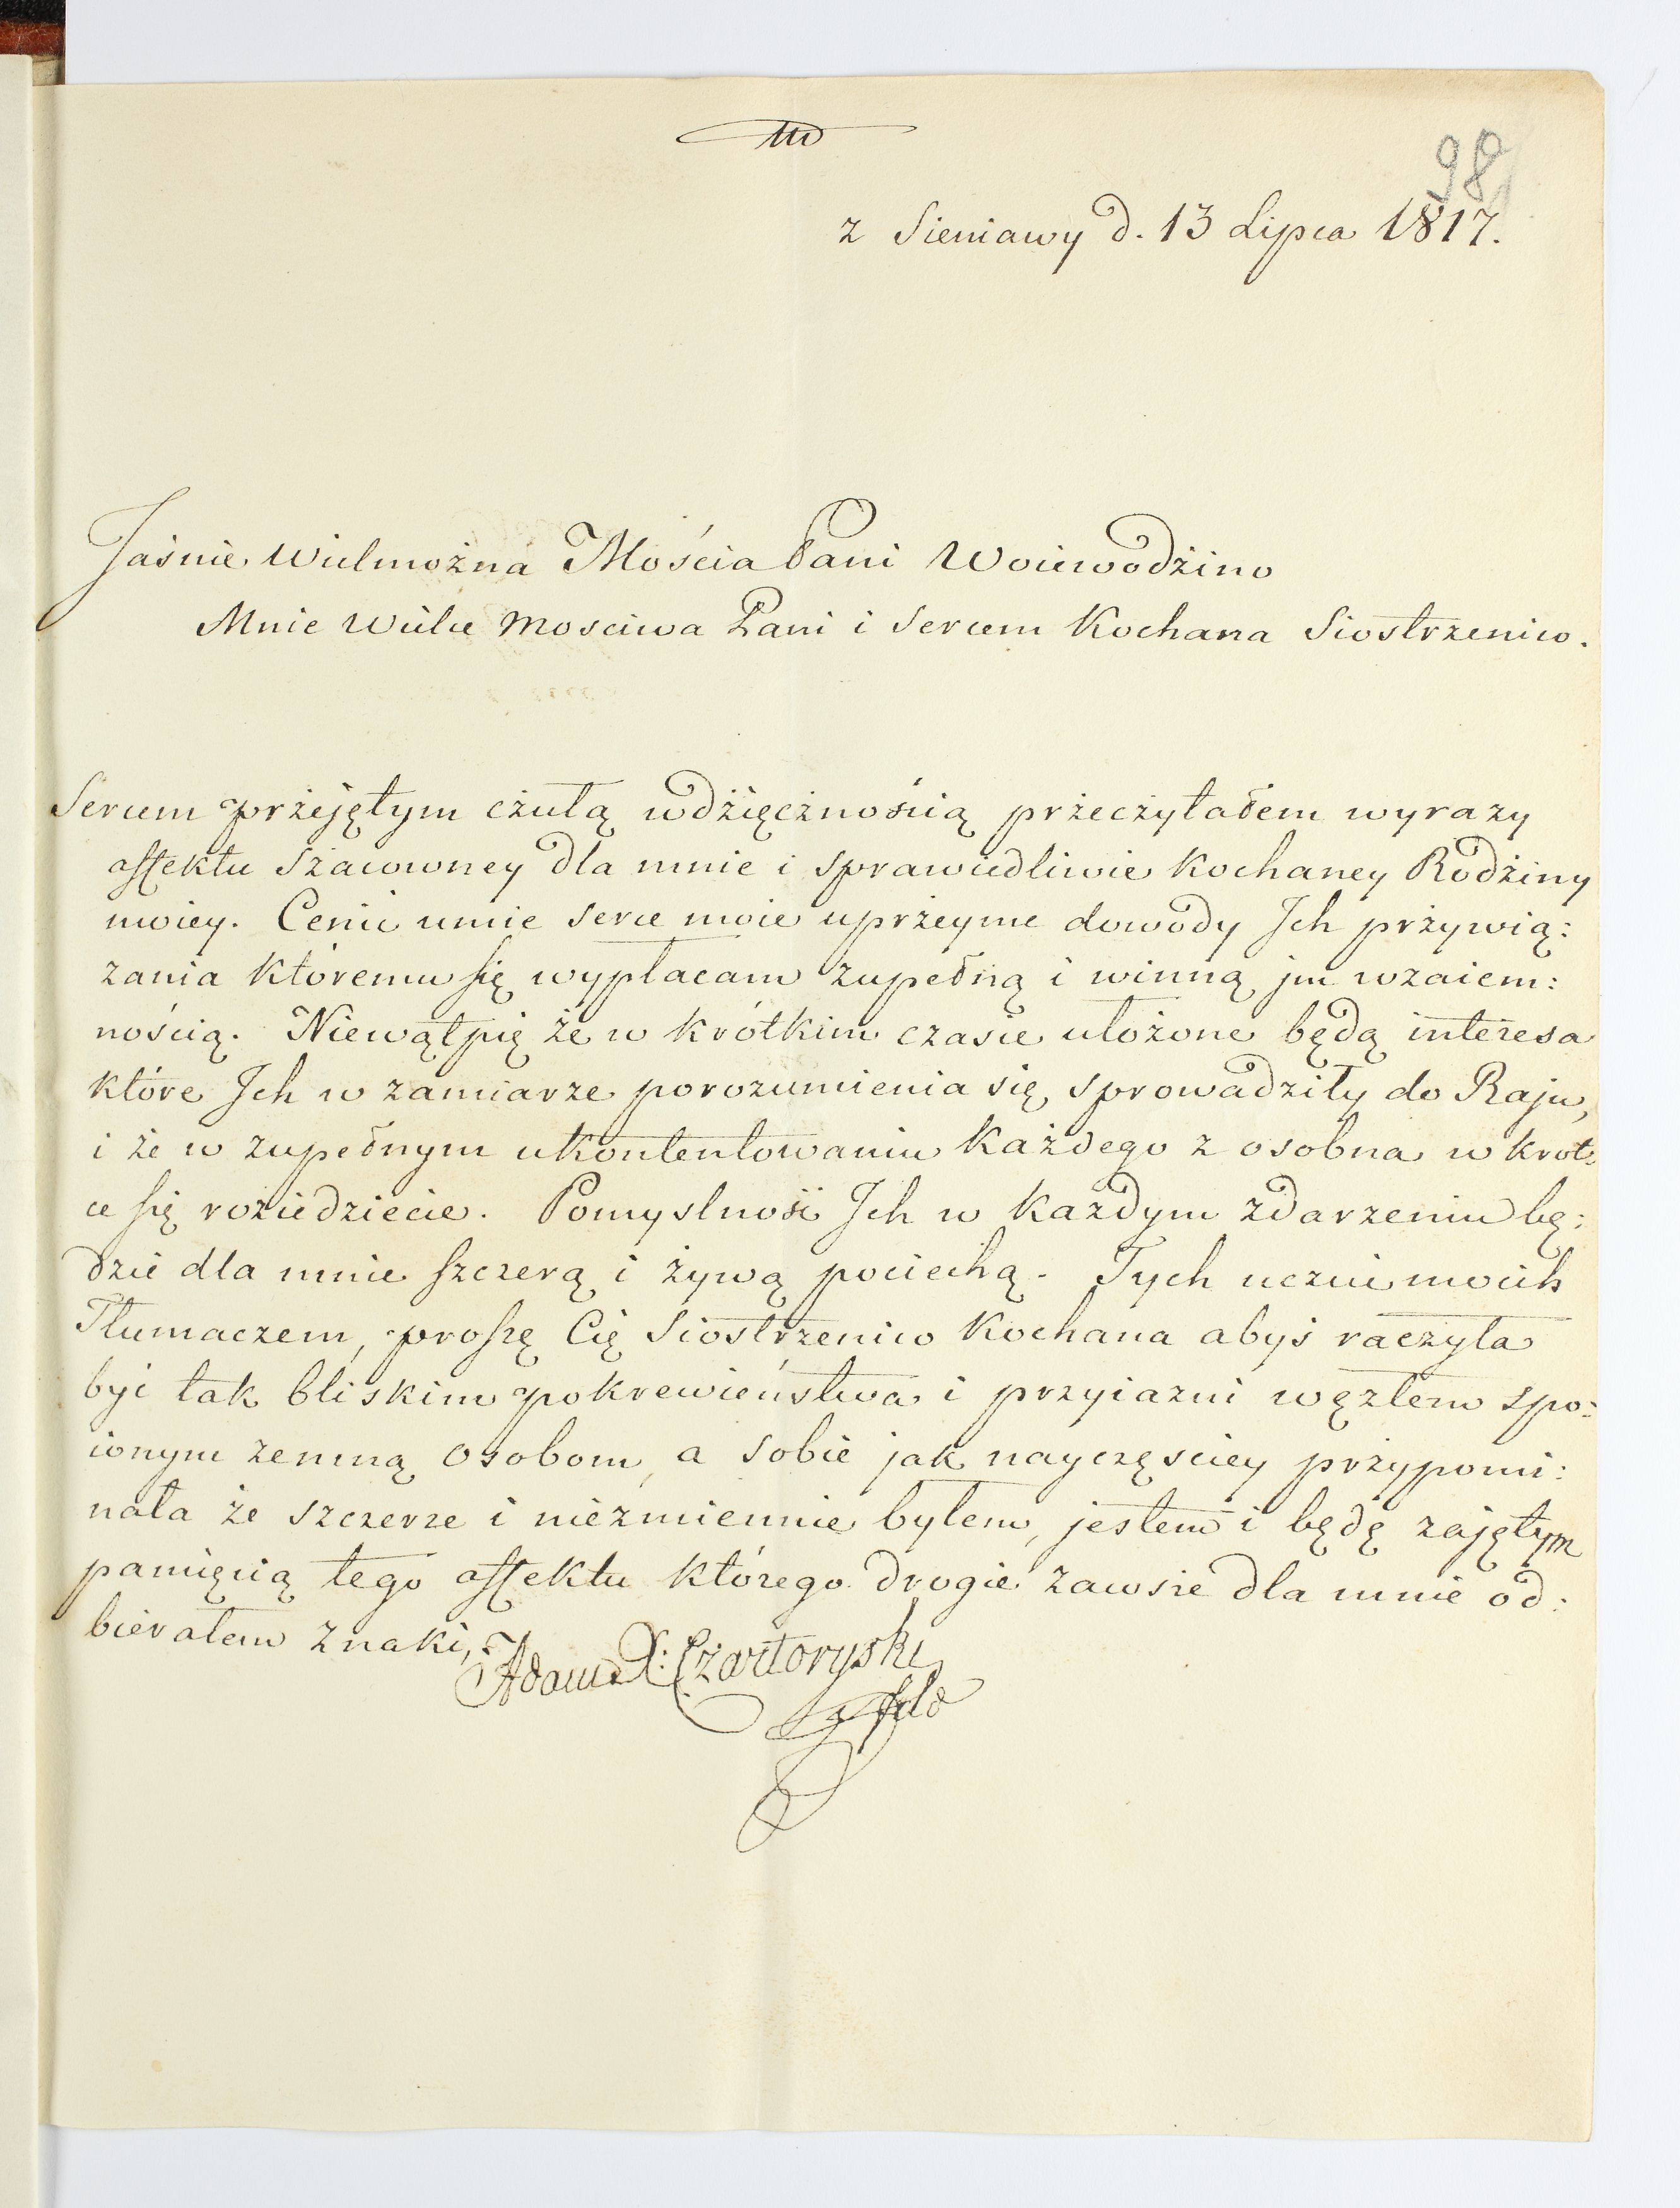 98
z Sieniawy d. 13 Lipca 1817.
Jaśnie Wielmożna Mościa Pani Woiewodżino
Mnie Wielce Mosciwa Pani i Sercem Kochana Siostrzenico.
Sercem przejętym czułą wdżięcżnością prżeczytałem wyrazy
affektu Szacowney dla mnie i sprawiedliwie kochaney Rodżiny
moiey. Cenić umie serce moie uprżeyme dowody Jch prżywią:
zania któremu się wypłacam zupełną i winną jm wzaiem:
nością. Niewątpię że w krótkim czasie ułożone będą interesa
które Jch w zamiarze porozumienia się sprowadziły do Raju,
i że w zupełnym ukontentowaniu każdego z osobna w krot:
ce się roziedziecie. Pomyslność Jch w każdym zdarzeniu bę:
dzie dla mnie szczerą i żywą pociechą. Tych uczuć moich
Tłumaczem, proszę Cię Siostrzenico Kochana abyś raczyła
być tak bliskim pokrewieństwa i przyiazni węzłem spo:
ionym zemną osobom, a sobie jak nayczęściey prżypomi:
nała że szczerze i niezmiennie byłem, jestem i będę zajętym
pamięcią tego affektu którego drogie zawsze dla mnie od:
bierałem znaki,
Adam X: Czartoryski